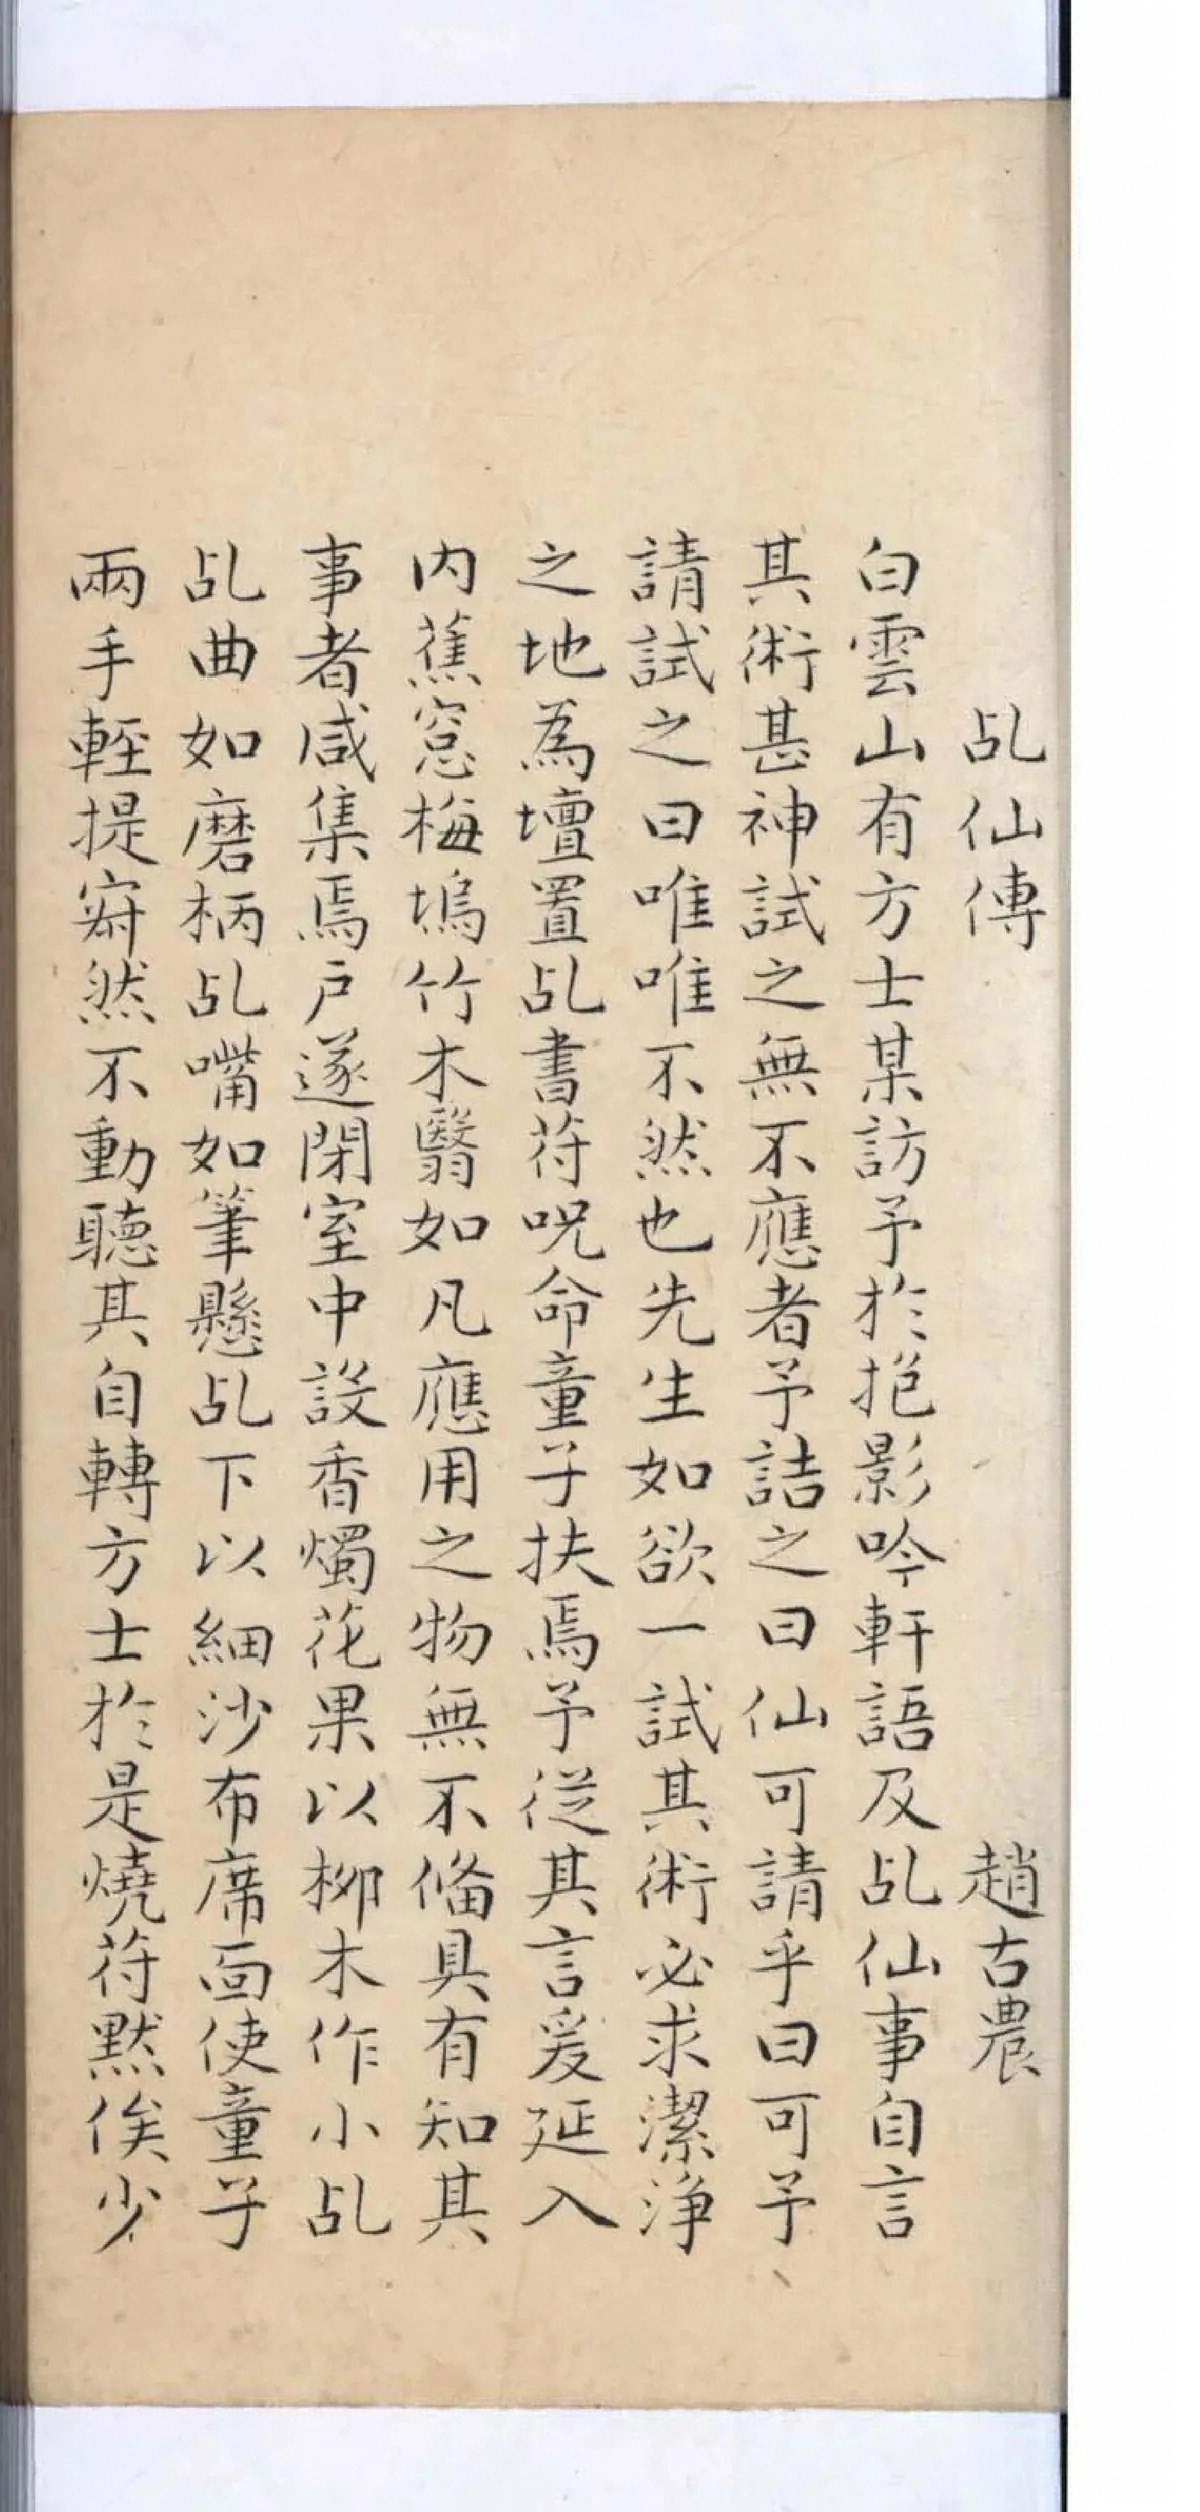 乩仙傳　趙古農
白雲山有方士某訪予於抱影吟軒語及乩仙事自言
其術甚神試之無不應者予詰之曰仙可請乎曰可予
請試之曰唯唯不然也先生如欲一試其術必求潔淨
之地為壇置乩書符呪命童子扶焉予從其言爰延入
内蕉窓梅塢竹木翳如凡應用之物無不俻具有知其
事者咸集焉戶遂閉室中設香燭花果以柳木作小乩
乩曲如磨柄乩嘴如筆懸乩下以細沙布席面使童子
兩手輕提寂然不動聽其自轉方士於是燒符默俟少